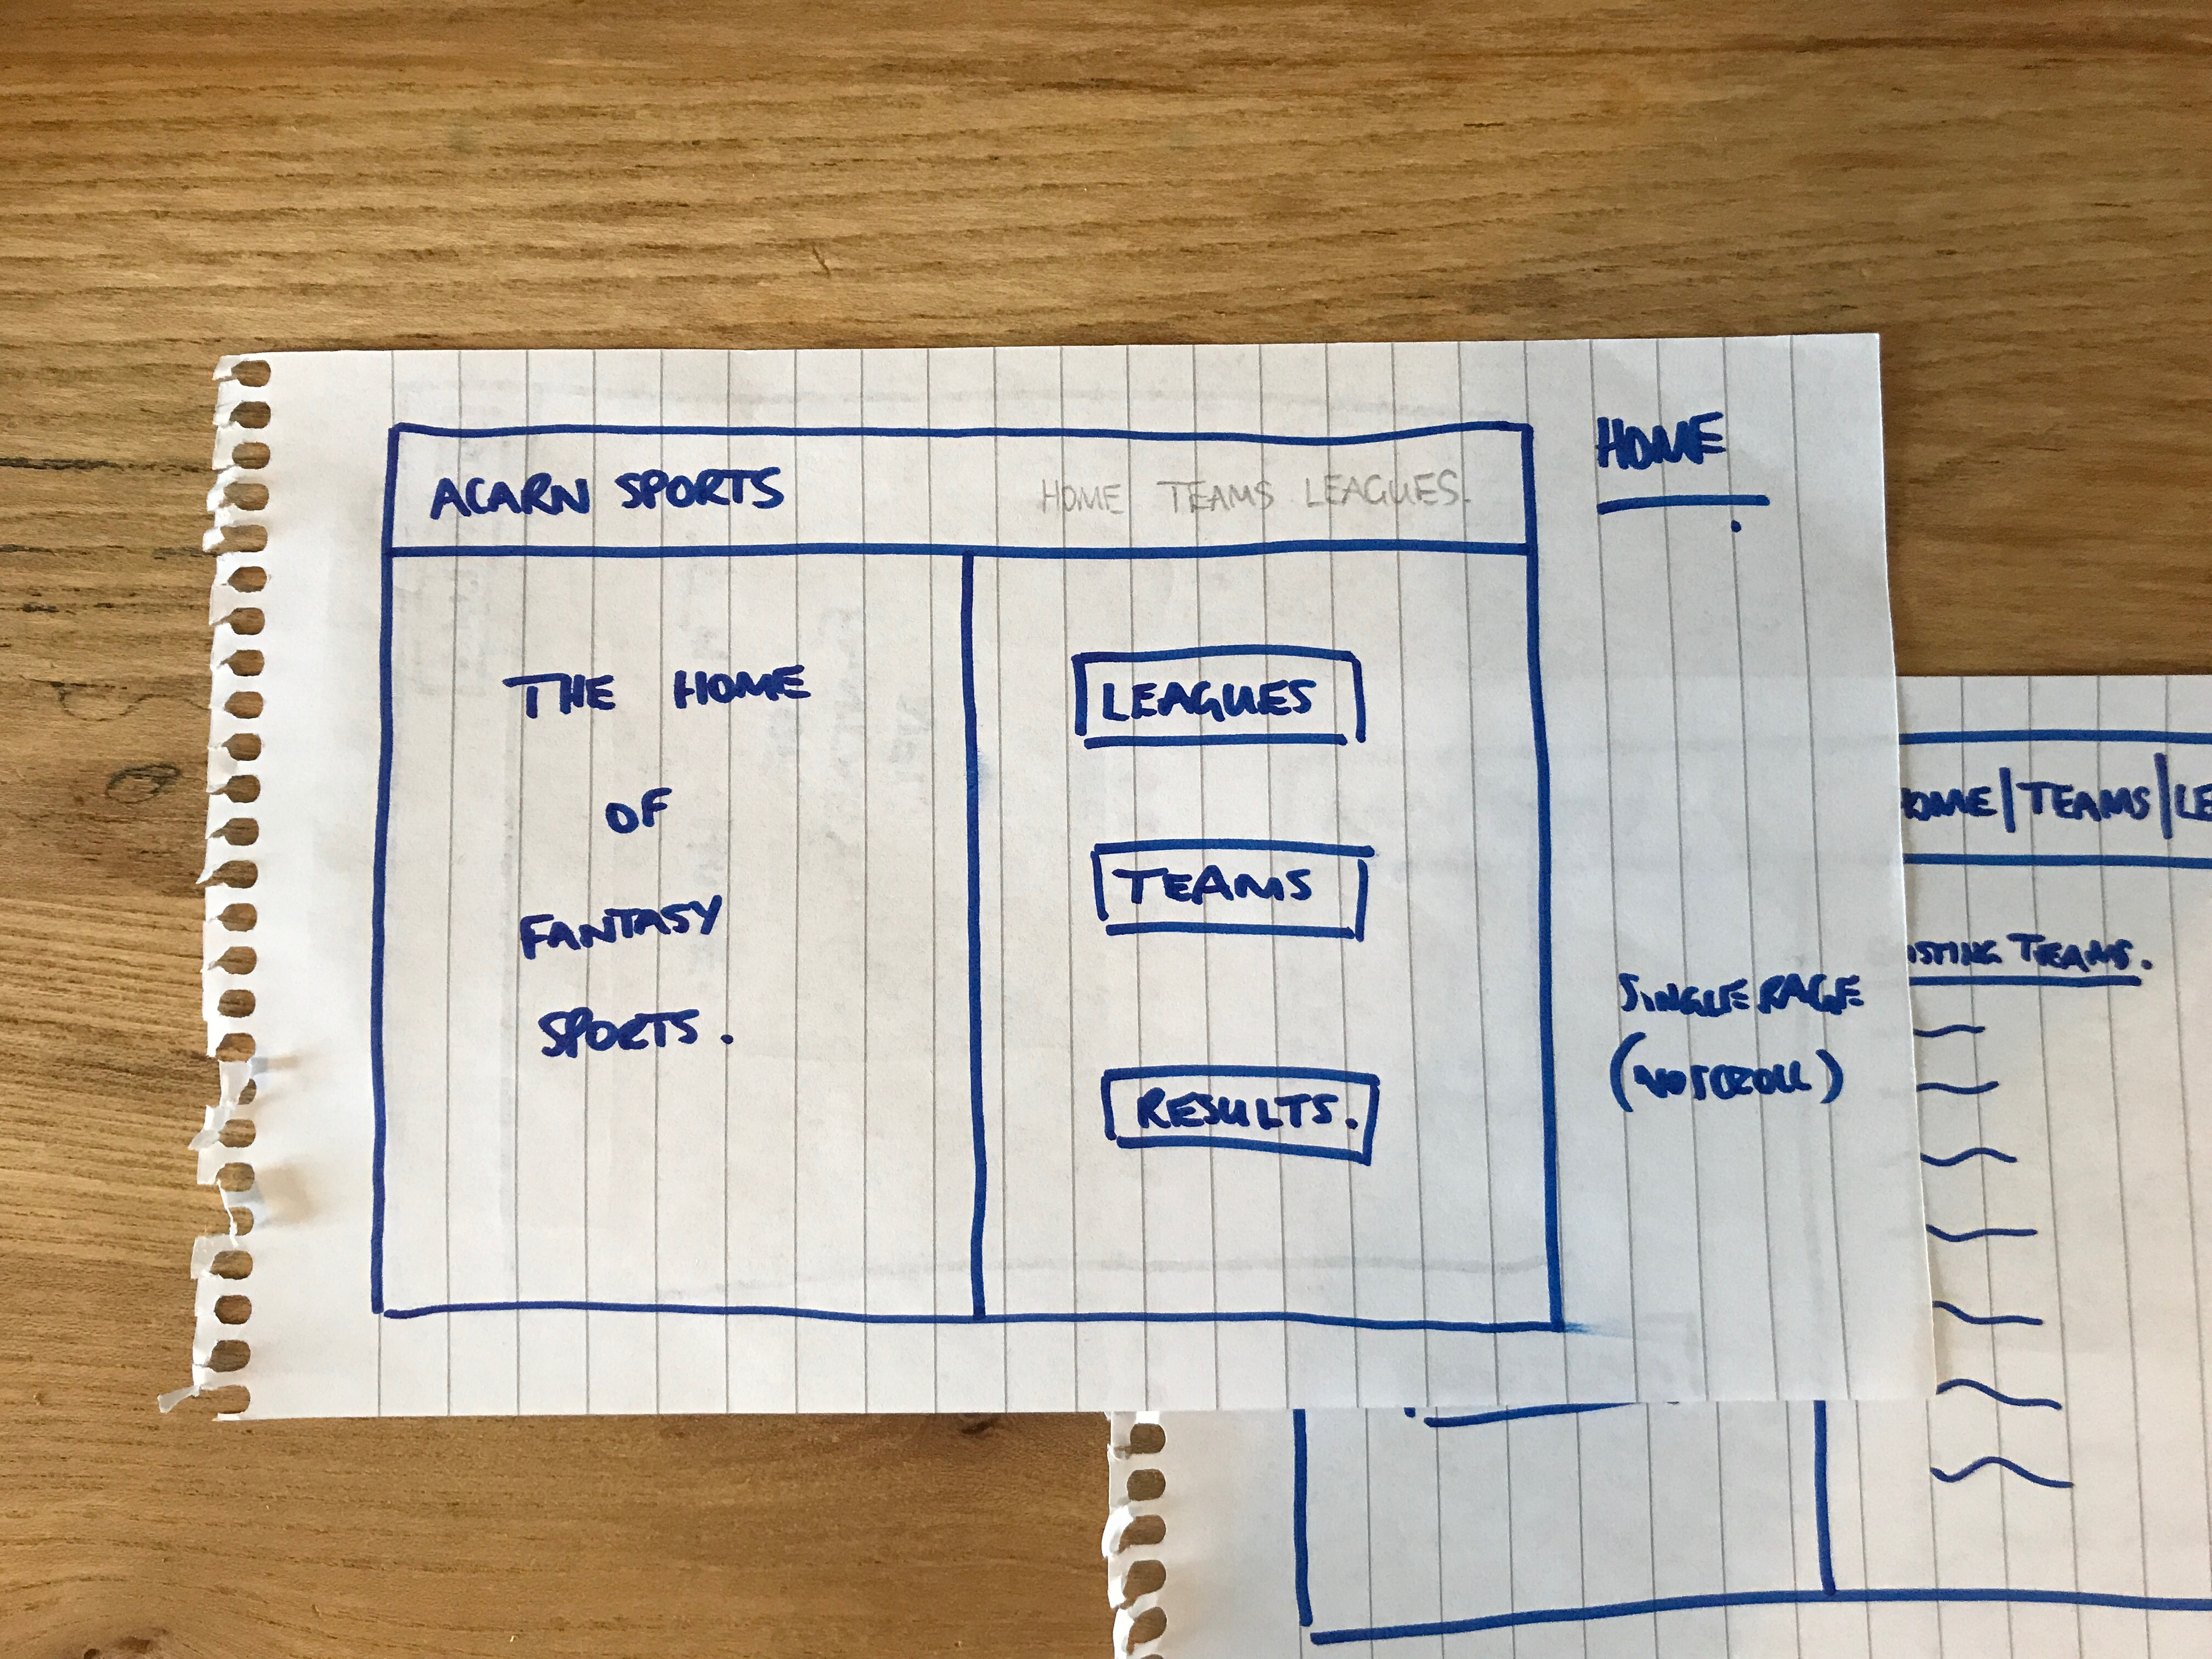 ACARN SPORTS
HOME TEAMS LEAGUES.
THE HOME
OF
FANTASY
SPORTS.
LEAGUES
TEAMS
RESULTS.
HOME
SINGLE PAGE
(NO SCROLL)
OME|TEAMS|LE
ISTING TEAMS.